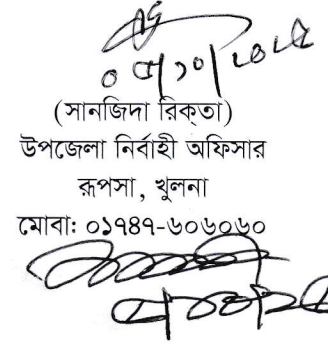 (সানজিদা রিক্তা)
উপজেলা নির্বাহী অফিসার
রূপসা, খুলনা
মোবা: ০১৭৪৭-৬০৬০৬০